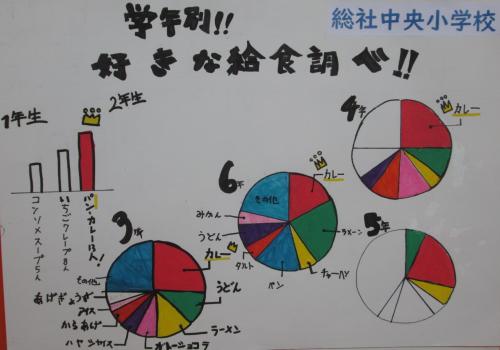 学年別!!
総社中央小学校
好きな給食調べ!!
1年生
2年生
コンソメスープ5人
いちごクレープ8人
パン・カレー12人!
3年
カレー
うどん
ラーメン
ハヤシライス
からあげ
アイス
あげぎょうざ
その他
6年
カレー
ラーメン
チャーハン
パン
タルト
うどん
みかん
その他
4年
カレー
5年